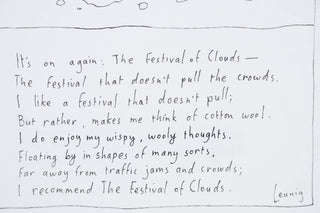 It's on again: The Festival of Clouds —
The festival that doesn't pull the crowds.
I like a festival that doesn't pull;
But rather, makes me think of cotton wool.
I do enjoy my wispy, wooly thoughts,
Floating by in shapes of many sorts,
Far away from traffic jams and crowds;
I recommend The Festival of Clouds.
Leunig